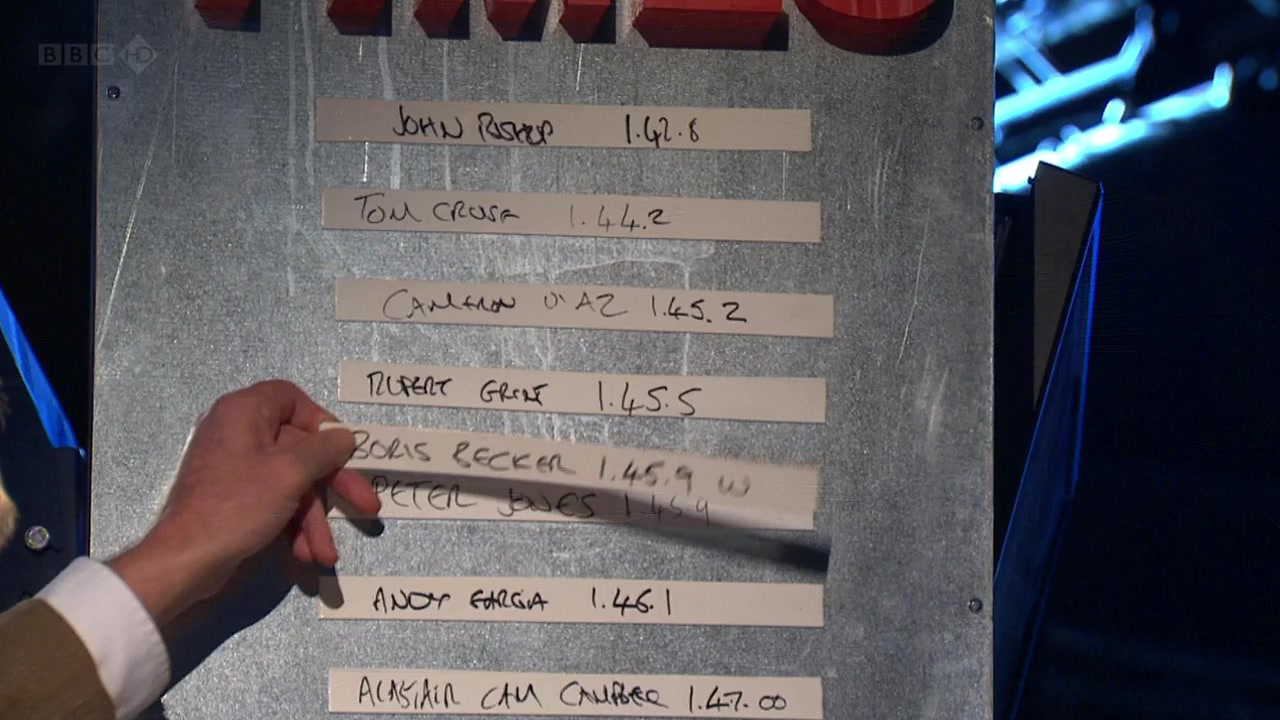 BBC HD
JOHN BISHOP 1.42.8
TOM CRUISE 1.44.2
CAMERON DIAZ 1.45.2
RUPERT GRINT 1.45.5
BORIS BECKER 1.45.9 W
PETER JONES 1.45.9
ANDY GARCIA 1.46.1
ALASTAIR CAM CAMPBELL 1.47.00